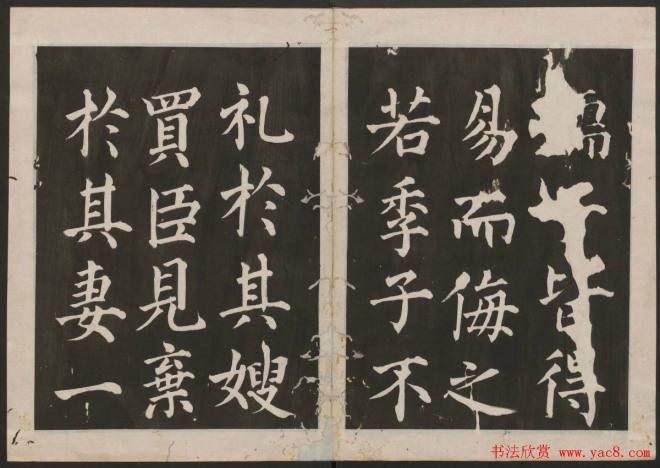 皆得
易而侮之
若季子不
礼於其嫂
買臣見棄
於其妻一
书法欣赏 www.yac8.com